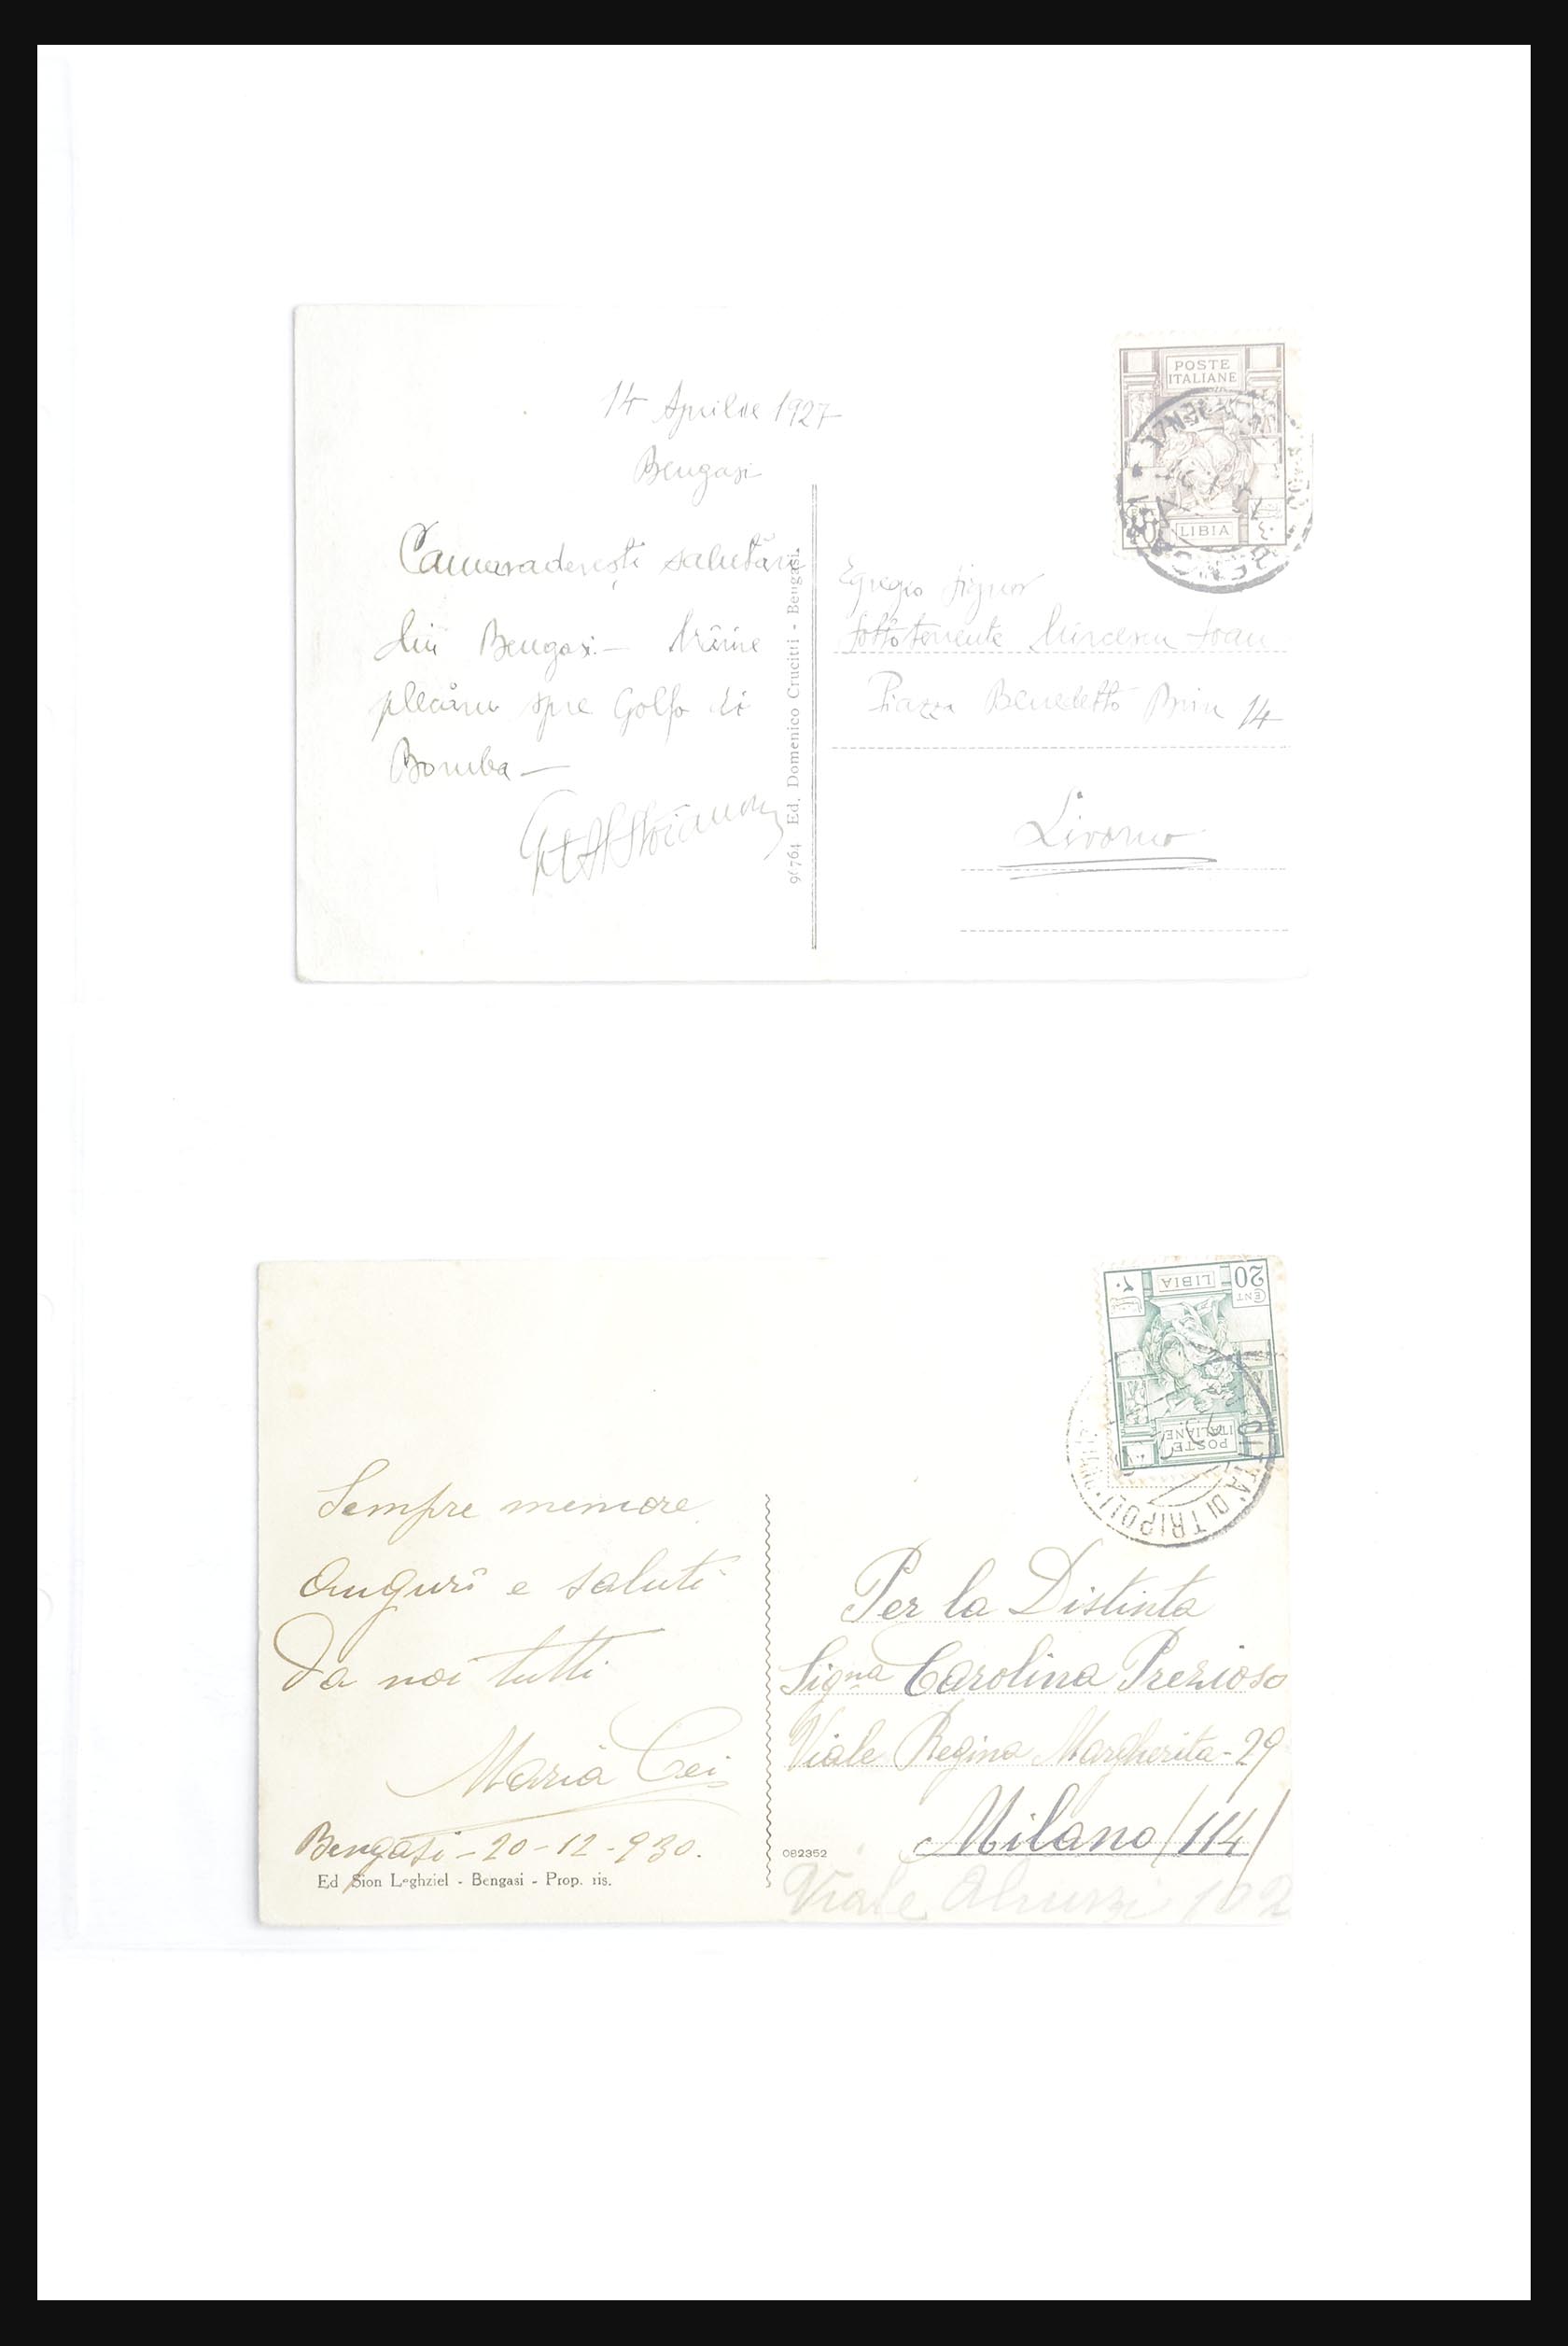 14 Aprilie 1927
Bengasi
Camaraderești salutări
din Bengasi. — Mâine
plecăm spre Golfo di
Bomba —
9/764 Ed. Domenico Crucitti - Bengasi.
POSTE
ITALIANE
LIBIA
Egregio Signor
Sottotenente Mircescu Ioan
Piazza Benedetto Brin 14
Livorno
Sempre memore
Auguri e saluti
da noi tutti
Maria Cei
Bengasi - 20 - 12 - 930.
Ed Sion Leghziel - Bengasi - Prop. ris.
LIBIA
20
CENT
POSTE
ITALIANE
CITTA' DI TRIPOLI
Per la Distinta
Signa Carolina Prezioso
Viale Regina Margherita - 29
Milano (114)
082352
Viale Abruzzi 102